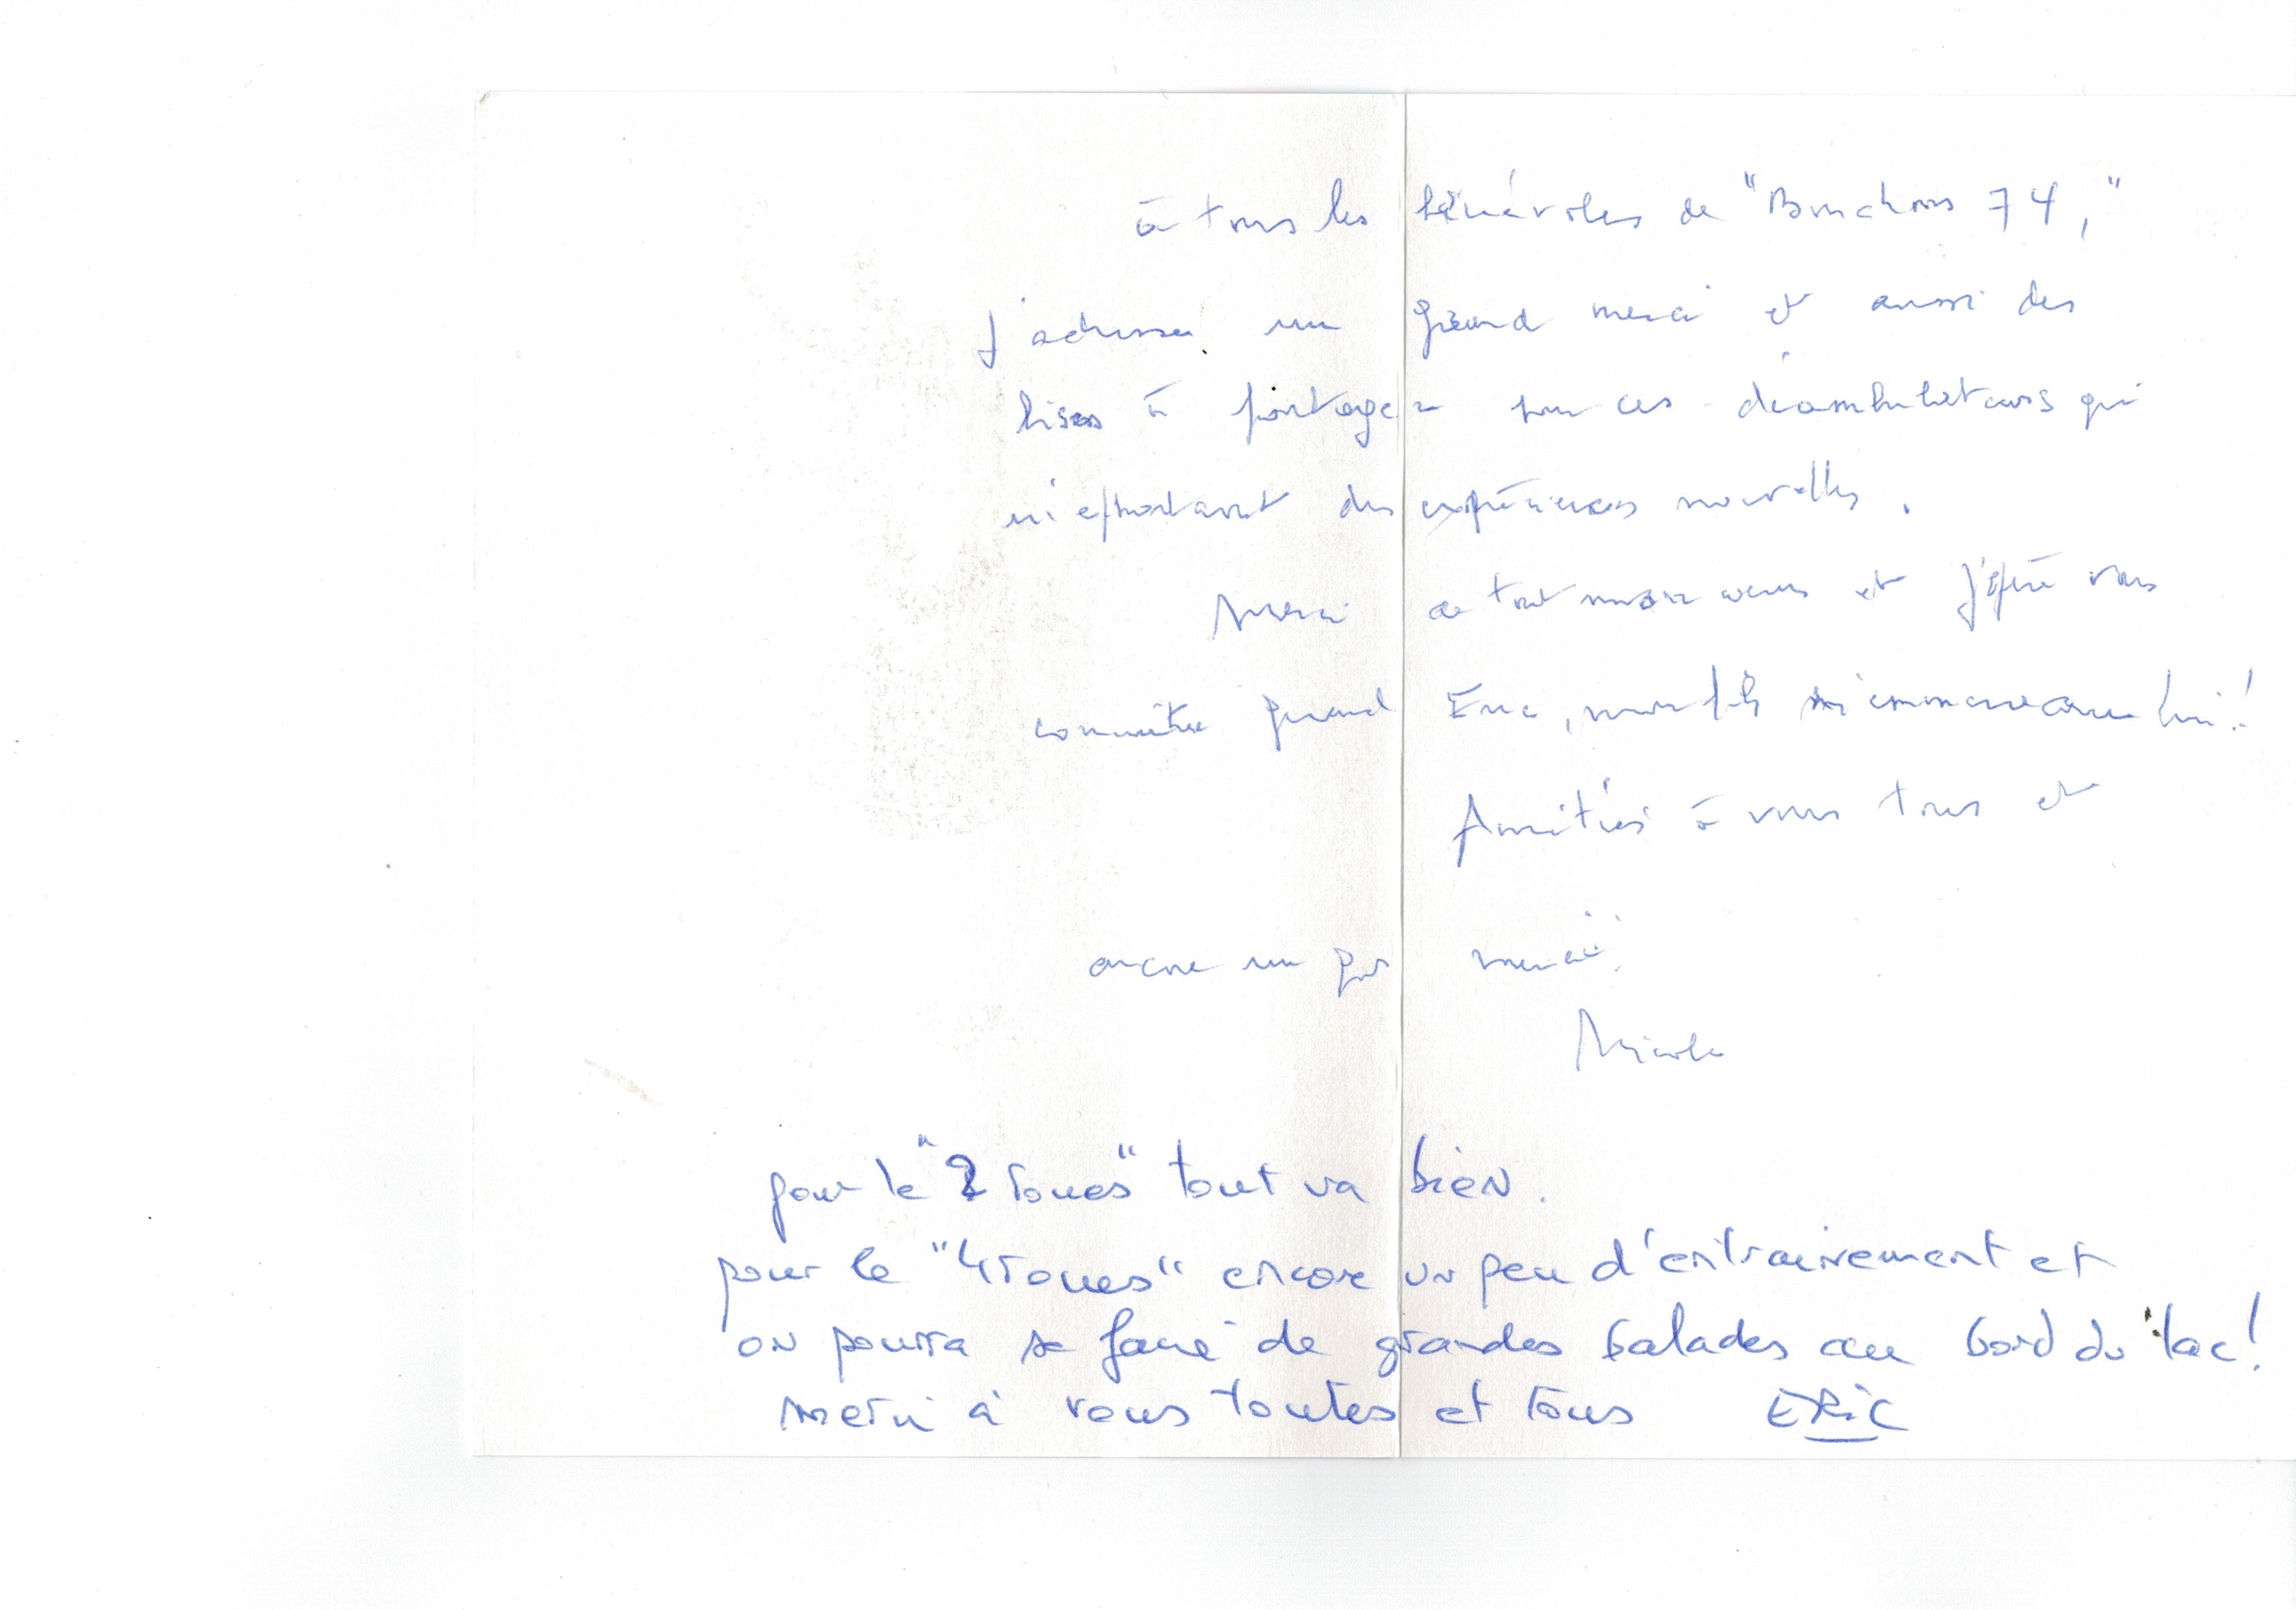 à tous les bénévoles de "Bouchons 74,"
j'adresse un grand merci et aussi des
bises à partager pour ces déambulateurs qui
m'apportent des expériences nouvelles.
Merci de tout mon coeur et j'espère vous
connaître quand Eric, mon fils m'emmenera lui!
Amitiés à vous tous et
encore une fois merci.
Nicole
pour le "2 roues" tout va bien.
pour le "4 roues" encore un peu d'entrainement et
on pourra se faire de grandes balades au bord du lac!
Merci à vous toutes et tous ERiC